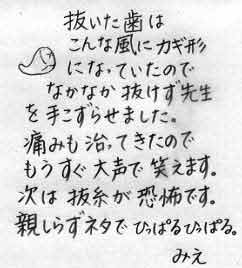 抜いた歯は
こんな風にカギ形
になっていたので
なかなか抜けず先生
を手こずらせました。
痛みも治ってきたので
もうすぐ大声で笑えます。
次は抜糸が恐怖です。
親しらずネタでひっぱるひっぱる。
みえ